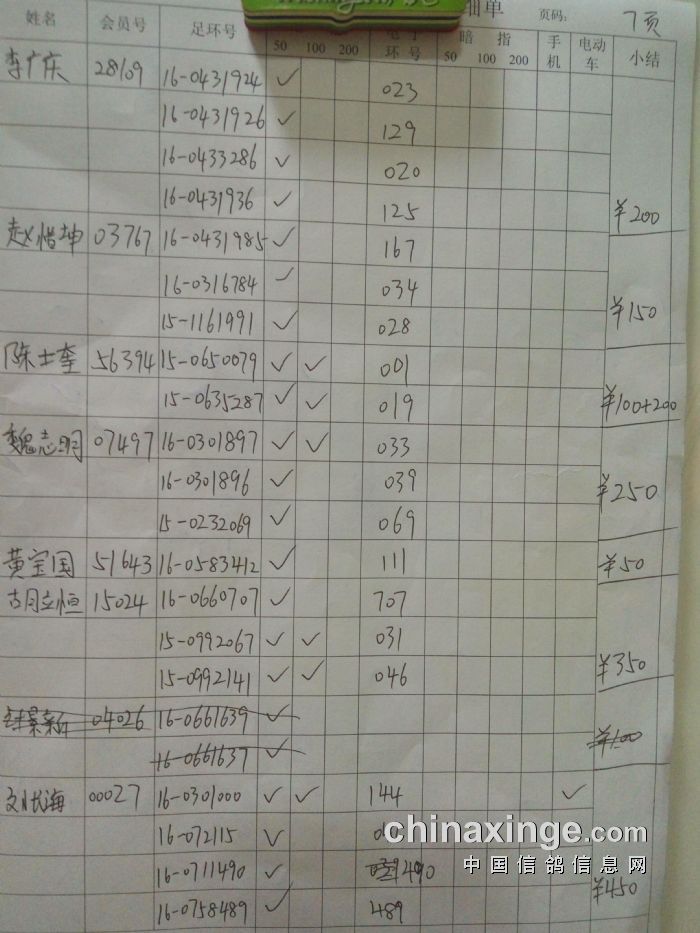 细单 页码: 7页
姓名 会员号 足环号 50 100 200 环号 暗 指 50 100 200 手机 电动车 小结
李广庆 28109 16-0431924 ✓ 023
16-0431926 ✓ 129
16-0433286 ✓ 020
16-0431936 ✓ 125 ¥200
赵惜坤 03767 16-0431985 ✓ 167
16-0316784 ✓ 034
15-1161991 ✓ 028 ¥150
陈士奎 56394 15-0650079 ✓ ✓ 001
15-0635287 ✓ ✓ 019 ¥100+200
魏志明 07497 16-0301897 ✓ ✓ 033
16-0301896 ✓ 039
15-0232069 ✓ 069 ¥250
黄宝国 51643 16-0583412 ✓ 111 ¥50
胡立恒 15024 16-0660707 ✓ 707
15-0992067 ✓ ✓ 031
15-0992141 ✓ ✓ 046 ¥350
04026 16-0661639 ✓
16-0661637 ✓ ¥100
刘长海 00027 16-0301000 ✓ ✓ 144 ✓
16-072115 ✓
16-0711490 ✓ 490
16-0758489 ✓ 489 ¥450
chinaxinge.com
中国信鸽信息网